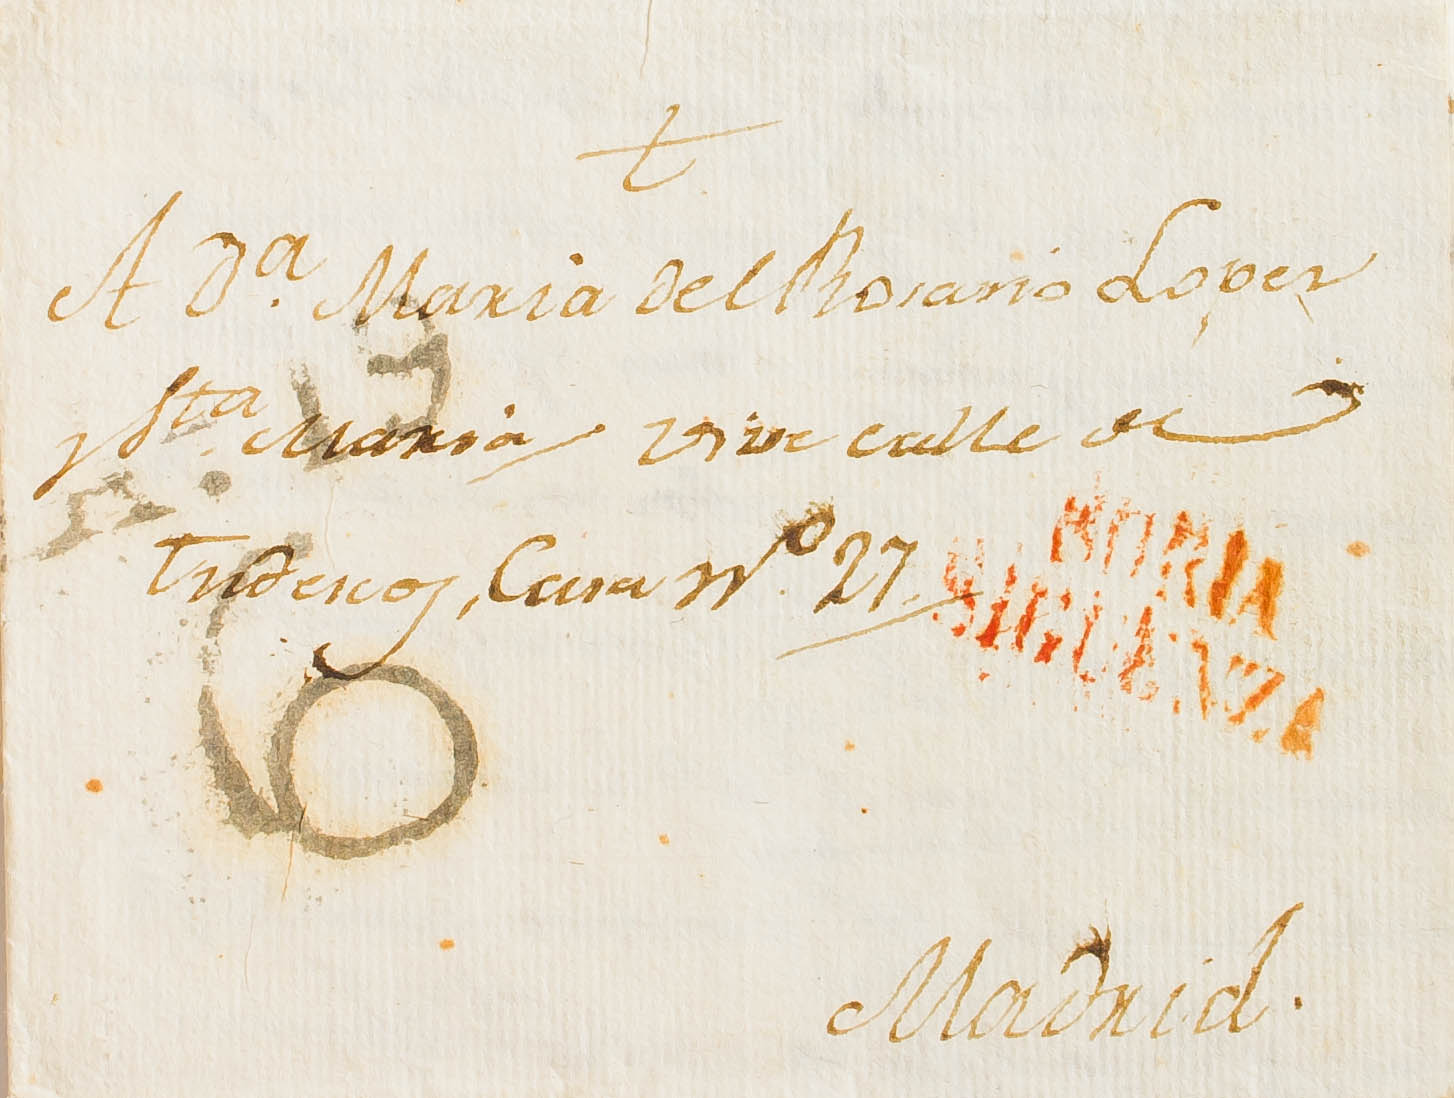 t
A D.ª Maria del Rosario Loper
y Sta. Maria vive calle de
Tudescos, Casa Nº. 27.
SORIA
SIGUENZA
6
Madrid.